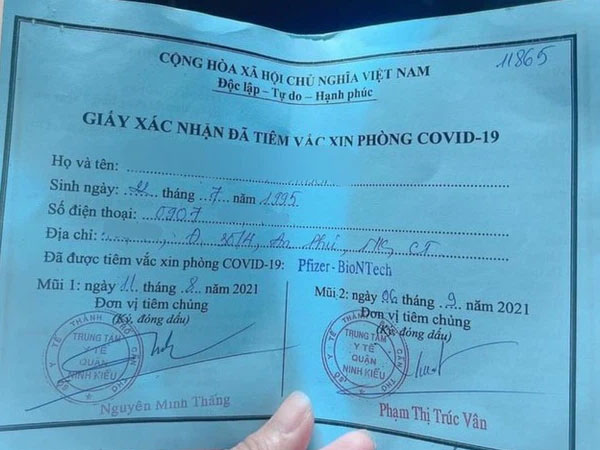 11865
CỘNG HÒA XÃ HỘI CHỦ NGHĨA VIỆT NAM
Độc lập – Tự do – Hạnh phúc
GIẤY XÁC NHẬN ĐÃ TIÊM VẮC XIN PHÒNG COVID-19
Họ và tên:
Sinh ngày: tháng 7 năm 1995
Số điện thoại: 0907
Địa chỉ: An Phú, NK, CT
Đã được tiêm vắc xin phòng COVID-19: Pfizer - BioNTech
Mũi 1: ngày 11 tháng 8 năm 2021
Đơn vị tiêm chủng
(Ký, đóng dấu)
SỞ Y TẾ THÀNH PHỐ CẦN THƠ
TRUNG TÂM
Y TẾ
QUẬN
NINH KIỀU
Nguyễn Minh Thắng
Mũi 2: ngày 06 tháng 9 năm 2021
Đơn vị tiêm chủng
(Ký, đóng dấu)
SỞ Y TẾ THÀNH PHỐ CẦN THƠ
TRUNG TÂM
Y TẾ
QUẬN
NINH KIỀU
Phạm Thị Trúc Vân